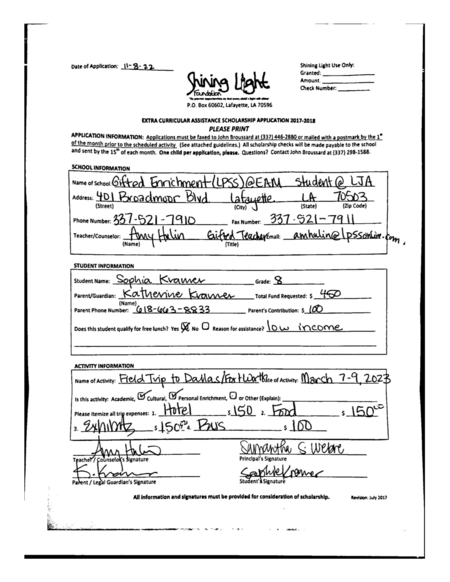 Date of Application: 11-8-22
Shining Light
Foundation
P.O. Box 60602, Lafayette, LA 70596
Shining Light Use Only:
Granted:
Amount
Check Number:
EXTRA CURRICULAR ASSISTANCE SCHOLARSHIP APPLICATION 2017-2018
PLEASE PRINT
APPLICATION INFORMATION: Applications must be faxed to John Broussard at (337) 446-2880 or mailed with a postmark by the 1st
of the month prior to the scheduled activity. (See attached guidelines.) All scholarship checks will be made payable to the school
and sent by the 15th of each month. One child per application, please. Questions? Contact John Broussard at (337) 298-1588.
SCHOOL INFORMATION
Name of School Gifted Enrichment (LPSS) @EAM Student @ LJA
Address: 401 Broadmoor Blvd. Lafayette LA 70503
(Street) (City) (State) (Zip Code)
Phone Number: 337-521-7910 Fax Number: 337-521-7911
Teacher/Counselor: Amy Halin Gifted Teacher Email: amhalin@lpssonline.com
(Name) (Title)
STUDENT INFORMATION
Student Name: Sophia Kramer Grade: 8
Parent/Guardian: Katherine Kramer Total Fund Requested: $ 450
(Name)
Parent Phone Number: 618-663-8833 Parent's Contribution: $ 100
Does this student qualify for free lunch? Yes No Reason for assistance? low income
ACTIVITY INFORMATION
Name of Activity: Field Trip to Dallas/Fort Worth Date of Activity: March 7-9, 2023
Is this activity: Academic, Cultural, Personal Enrichment, or Other (Explain):
Please itemize all trip expenses: 1. Hotel $ 150 2. Food $ 150.00
3. Exhibits $ 150.00 4. Bus $ 100
Amy Halin Samantha S. Webre
Teacher / Counselor's Signature Principal's Signature
K. Kramer Sophie Kramer
Parent / Legal Guardian's Signature Student's Signature
All information and signatures must be provided for consideration of scholarship. Revision: July 2017